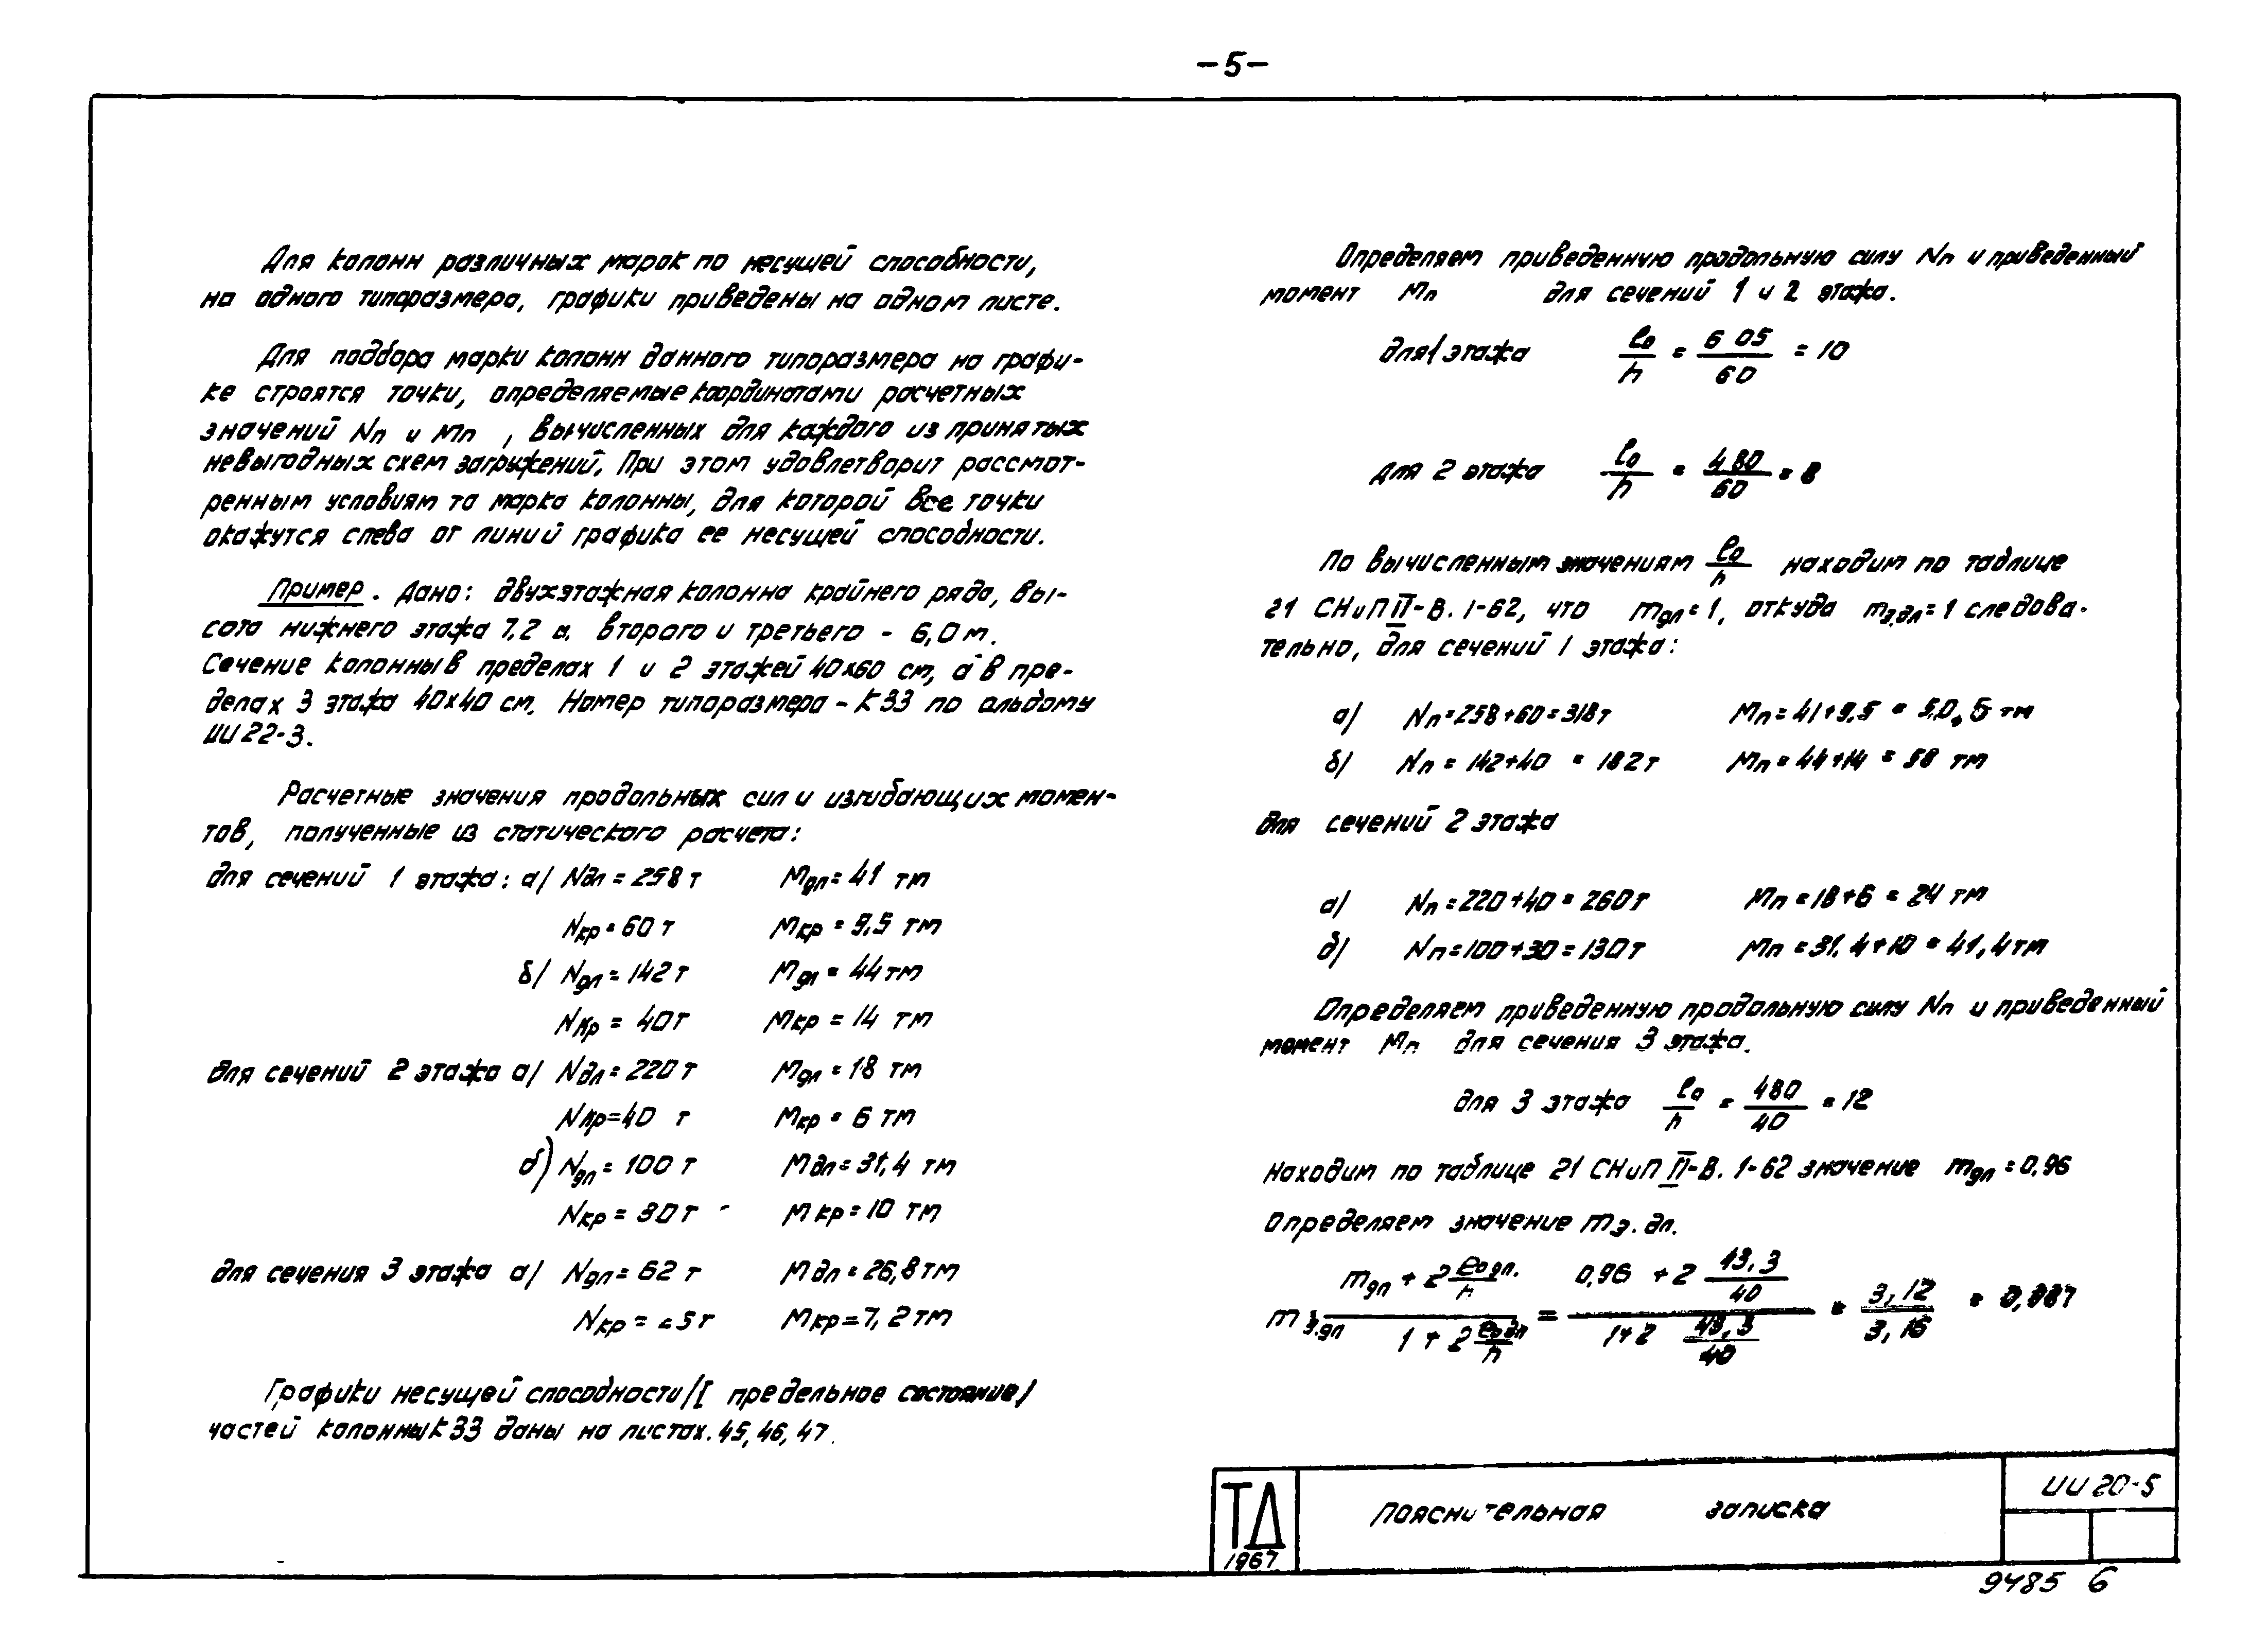 -5-
Для колонн различных марок по несущей способности,
но одного типоразмера, графики приведены на одном листе.
Для подбора марки колонн данного типоразмера на графи-
ке строятся точки, определяемые координатами расчетных
значений Nп и Мп , вычисленных для каждого из принятых
невыгодных схем загружений. При этом удовлетворит рассмот-
ренным условиям та марка колонны, для которой все точки
окажутся слева от линий графика ее несущей способности.
Пример. Дано: двухэтажная колонна крайнего ряда, вы-
сота нижнего этажа 7,2 м. второго и третьего - 6,0 м.
Сечение колонны в пределах 1 и 2 этажей 40х60 см, а в пре-
делах 3 этажа 40х40 см. Номер типоразмера - К33 по альбому
ИИ 22-3.
Расчетные значения продольных сил и изгибающих момен-
тов, полученные из статического расчета:
для сечений 1 этажа: а/ Nдл = 258 т Мдл = 41 тм
Nкр = 60 т Мкр = 9,5 тм
б/ Nдл = 142 т Мдл = 44 тм
Nкр = 40 т Мкр = 14 тм
для сечений 2 этажа а/ Nдл = 220 т Мдл = 18 тм
Nкр = 40 т Мкр = 6 тм
б) Nдл = 100 т Мдл = 31,4 тм
Nкр = 30 т Мкр = 10 тм
для сечения 3 этажа а/ Nдл = 62 т Мдл = 26,8 тм
Nкр = 5 т Мкр = 7,2 тм
Графики несущей способности /I предельное состояние/
частей колонны К33 даны на листах. 45, 46, 47.
Определяем приведенную продольную силу Nп и приведенный
момент Мп для сечений 1 и 2 этажа.
для 1 этажа l₀/h = 605/60 = 10
для 2 этажа l₀/h = 480/60 = 8
По вычисленным значениям l₀/h находим по таблице
21 СНиП II-В. 1-62, что mдл = 1, откуда mэ.дл = 1 следова-
тельно, для сечений 1 этажа:
а/ Nп = 258+60 = 318 т Мп = 41+9,5 = 50,5 тм
б/ Nп = 142+40 = 182 т Мп = 44+14 = 58 тм
для сечений 2 этажа
а/ Nп = 220+40 = 260 т Мп = 18+6 = 24 тм
б/ Nп = 100+30 = 130 т Мп = 31,4+10 = 41,4 тм
Определяем приведенную продольную силу Nп и приведенный
момент Мп для сечения 3 этажа.
для 3 этажа l₀/h = 480/40 = 12
Находим по таблице 21 СНиП II-В. 1-62 значение mдл = 0,96
Определяем значение mэ.дл.
mэ.дл = (mдл + 2 e₀дл./h)/(1 + 2 e₀дл/h) = (0,96 + 2 43,3/40)/(1+2 43,3/40) = 3,12/3,16 = 0,987
ТД
1967
Пояснительная записка
ИИ 20-5
9485 6